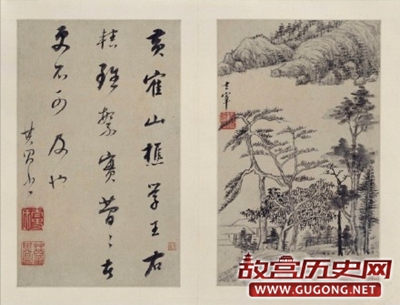 黄隺山樵学王右
轄雖繁實簡
更不可及也
其昌
玄宰
故宫历史网
WWW.GUGONG.NET